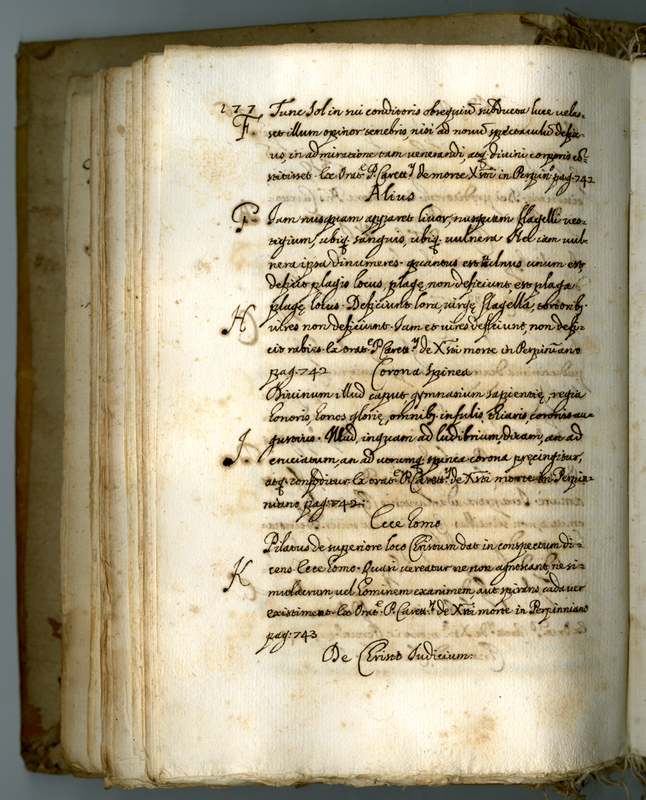 177 Tunc Sol in sui conditoris obsequiũ subducta luce velas-
F. set illum opinor tenebris nisi ad novũ spectaculũ defix-
us, in admiratione tam venerandi, atq; divini corporis cõ-
stitisset. Ex Orat.e P. Carett.ij de morte Xsti in Perpin.o pag. 742
Alius
G. Iam nusquam apparet livor, nusquam flagelli ves-
tigium, ubiq; sanguis, ubiq; vulnera
nera ipsa dinumeres. quantus est vulnus unum est
defuit plagis locus, plagę non deficiunt est plaga
H plagę locus. Deficiunt lora, virgę flagella, tortorib;
vires non deficiunt. Iam et vires deficiunt, non defi-
cit rabies. Ex orat.e P. Carett.ij de Xsti morte in Perpiniano
pag. 742 Corona Spinea
Divinum illud caput gymnasium sapientię, regia
honoris, honos glorię, omnib; infulis, thiaris, coronis au-
I. gustius. Illud, inquam ad ludibrium, dicam, an ad
cruciatum, an ad utrumq; spinea corona pręcingitur,
atq; confoditur. Ex orat.e P. Carett.ij de Xsti morte in Perpin-
niano pag. 742.
Ecce homo
Pilatus de superiore loco Christum dat in conspectum di-
K cens Ecce homo. Quasi vereatur ne non agnoscant, ne si-
mulacrum, vel hominem exanimem, aut spirans cadaver
existiment. Ex Orat.e P. Carett.ij de Xsti morte in Perpinniano
pag: 743
De Christo Iudicium: